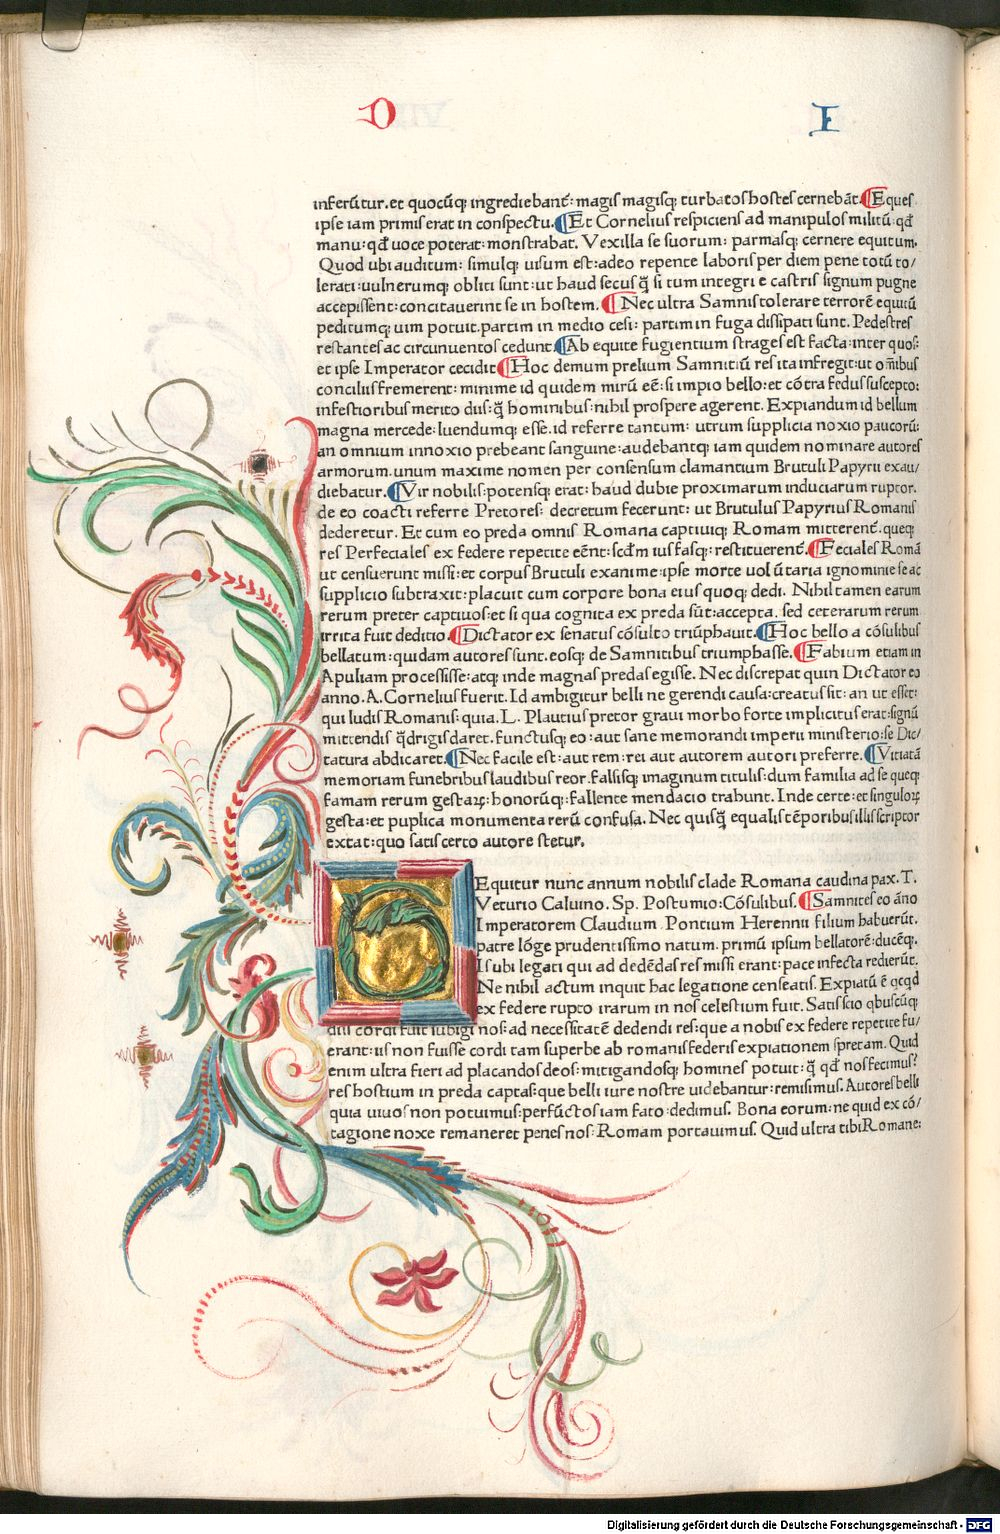 D I
inferūtur. et quocūq; ingrediebant᷑: magis magisq; turbatos hostes cernebāt. ¶Eques
ipse iam primis erat in conspectu. ¶Et Cornelius respiciens ad manipulos militū: qd̄
manu: qd̄ uoce poterat: monstrabat. Vexilla se suorum: parmasq; cernere equitum.
Quod ubi auditum: simulq; uisum est: adeo repente laboris per diem pene totū to/
lerati: uulnerumq; obliti sunt: ut haud secus q̄ si tum integri e castris signum pugne
accepissent: concitauerint se in hostem. ¶Nec ultra Samnis tolerare terrorē equitū
peditumq; uim potuit. partim in medio cesi: partim in fuga dissipati sunt. Pedestres
restantes ac circunuentos cedunt ¶Ab equite fugientium strages est facta: inter quos:
et ipse Imperator cecidit ¶Hoc demum prelium Samnitiū res ita infregit: ut om̄ibus
conciliis fremerent: minime id quidem mirū eē: si impio bello: et cōtra fedus suscepto:
infestioribus merito diis: q̄ hominibus: nihil prospere agerent. Expiandum id bellum
magna mercede: luendumq; esse. id referre tantum: utrum supplicia noxio paucorū:
an omnium innoxio prebeant sanguine: audebantq; iam quidem nominare autores
armorum. unum maxime nomen per consensum clamantium Brutuli Papyrii exau/
diebatur. ¶Vir nobilis: potensq; erat: haud dubie proximarum induciarum ruptor.
de eo coacti referre Pretores: decretum fecerunt: ut Brutulus Papyrius Romanis
dederetur. Et cum eo preda omnis Romana captiuiq; Romam mitterent᷑. queq;
res Per feciales ex federe repetite eēnt: scd̄m ius fasq;: restituerent᷑. ¶Feciales Romā
ut censuerunt missi: et corpus Brutuli exanime: ipse morte uolūtaria ignominie se ac
supplicio subtraxit: placuit cum corpore bona eius quoq; dedi. Nihil tamen earum
rerum preter captiuos: et si qua cognita ex preda sūt: accepta. sed ceterarum rerum
irrita fuit deditio. ¶Dictator ex senatus cōsulto triūphauit. ¶Hoc bello a cōsulibus
bellatum: quidam autores sunt. eosq; de Samnitibus triumphasse. ¶Fabium etiam in
Apuliam processisse: atq; inde magnas predas egisse. Nec discrepat quin Dictator eo
anno. A. Cornelius fuerit. Id ambigitur belli ne gerendi causa: creatus sit: an ut esset:
qui ludis Romanis: quia. L. Plautius pretor graui morbo forte implicitus erat: signū
mittendis q̄drigis daret. functusq; eo: aut sane memorandi imperii ministerio: se Dic/
tatura abdicaret. ¶Nec facile est: aut rem: rei aut autorem autori preferre. ¶Vitiatā
memoriam funebribus laudibus reor. falsisq; imaginum titulis: dum familia ad se queq;
famam rerum gestaꝝ: honorūq;: fallente mendacio trahunt. Inde certe: et singuloꝝ
gesta: et puplica monumenta rerū confusa. Nec quisq̄ equalis tēporibus illis scriptor
extat: quo satis certo autore stetur.
Equitur nunc annum nobilis clade Romana caudina pax. T.
Veturio Caluino. Sp. Postumio: Cōsulibus. ¶Samnites eo āno
Imperatorem Claudium Pontium Herennii filium habuerūt.
patre lōge prudentissimo natum. primū ipsum bellatorē: ducēq;.
Is ubi legati qui ad dedēdas res missi erant: pace infecta redierūt.
Ne nihil actum inquit hac legatione censeatis. Expiatū ē qcqd
ex federe rupto irarum in nos celestium fuit. Satis scio qbuscūq;
diis cordi fuit subigi nos: ad necessitatē dedendi res: que a nobis ex federe repetite fu/
erant: iis non fuisse cordi tam superbe ab romanis federis expiationem spretam. Quid
enim ultra fieri ad placandos deos: mitigandosq; homines potuit: q̄ qd̄ nos fecimus?
res hostium in preda captas: que belli iure nostre uidebantur: remisimus. Autores belli
quia uiuos non potuimus: perfūctos iam fato: dedimus. Bona eorum: ne quid ex cō/
tagione noxe remaneret penes nos: Romam portauimus. Quid ultra tibi Romane:
Digitalisierung gefördert durch die Deutsche Forschungsgemeinschaft - DFG